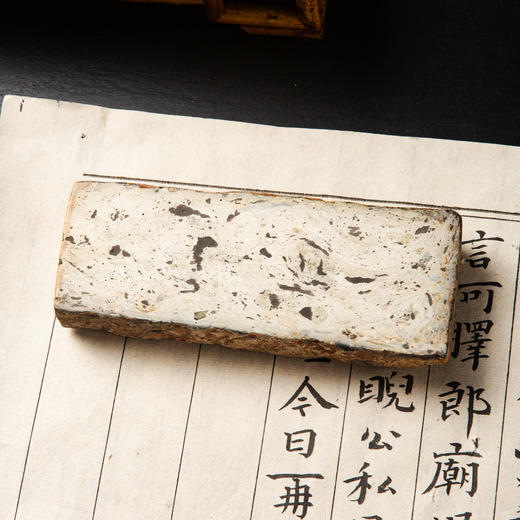 言可擇郎廟
睨公私
今日再